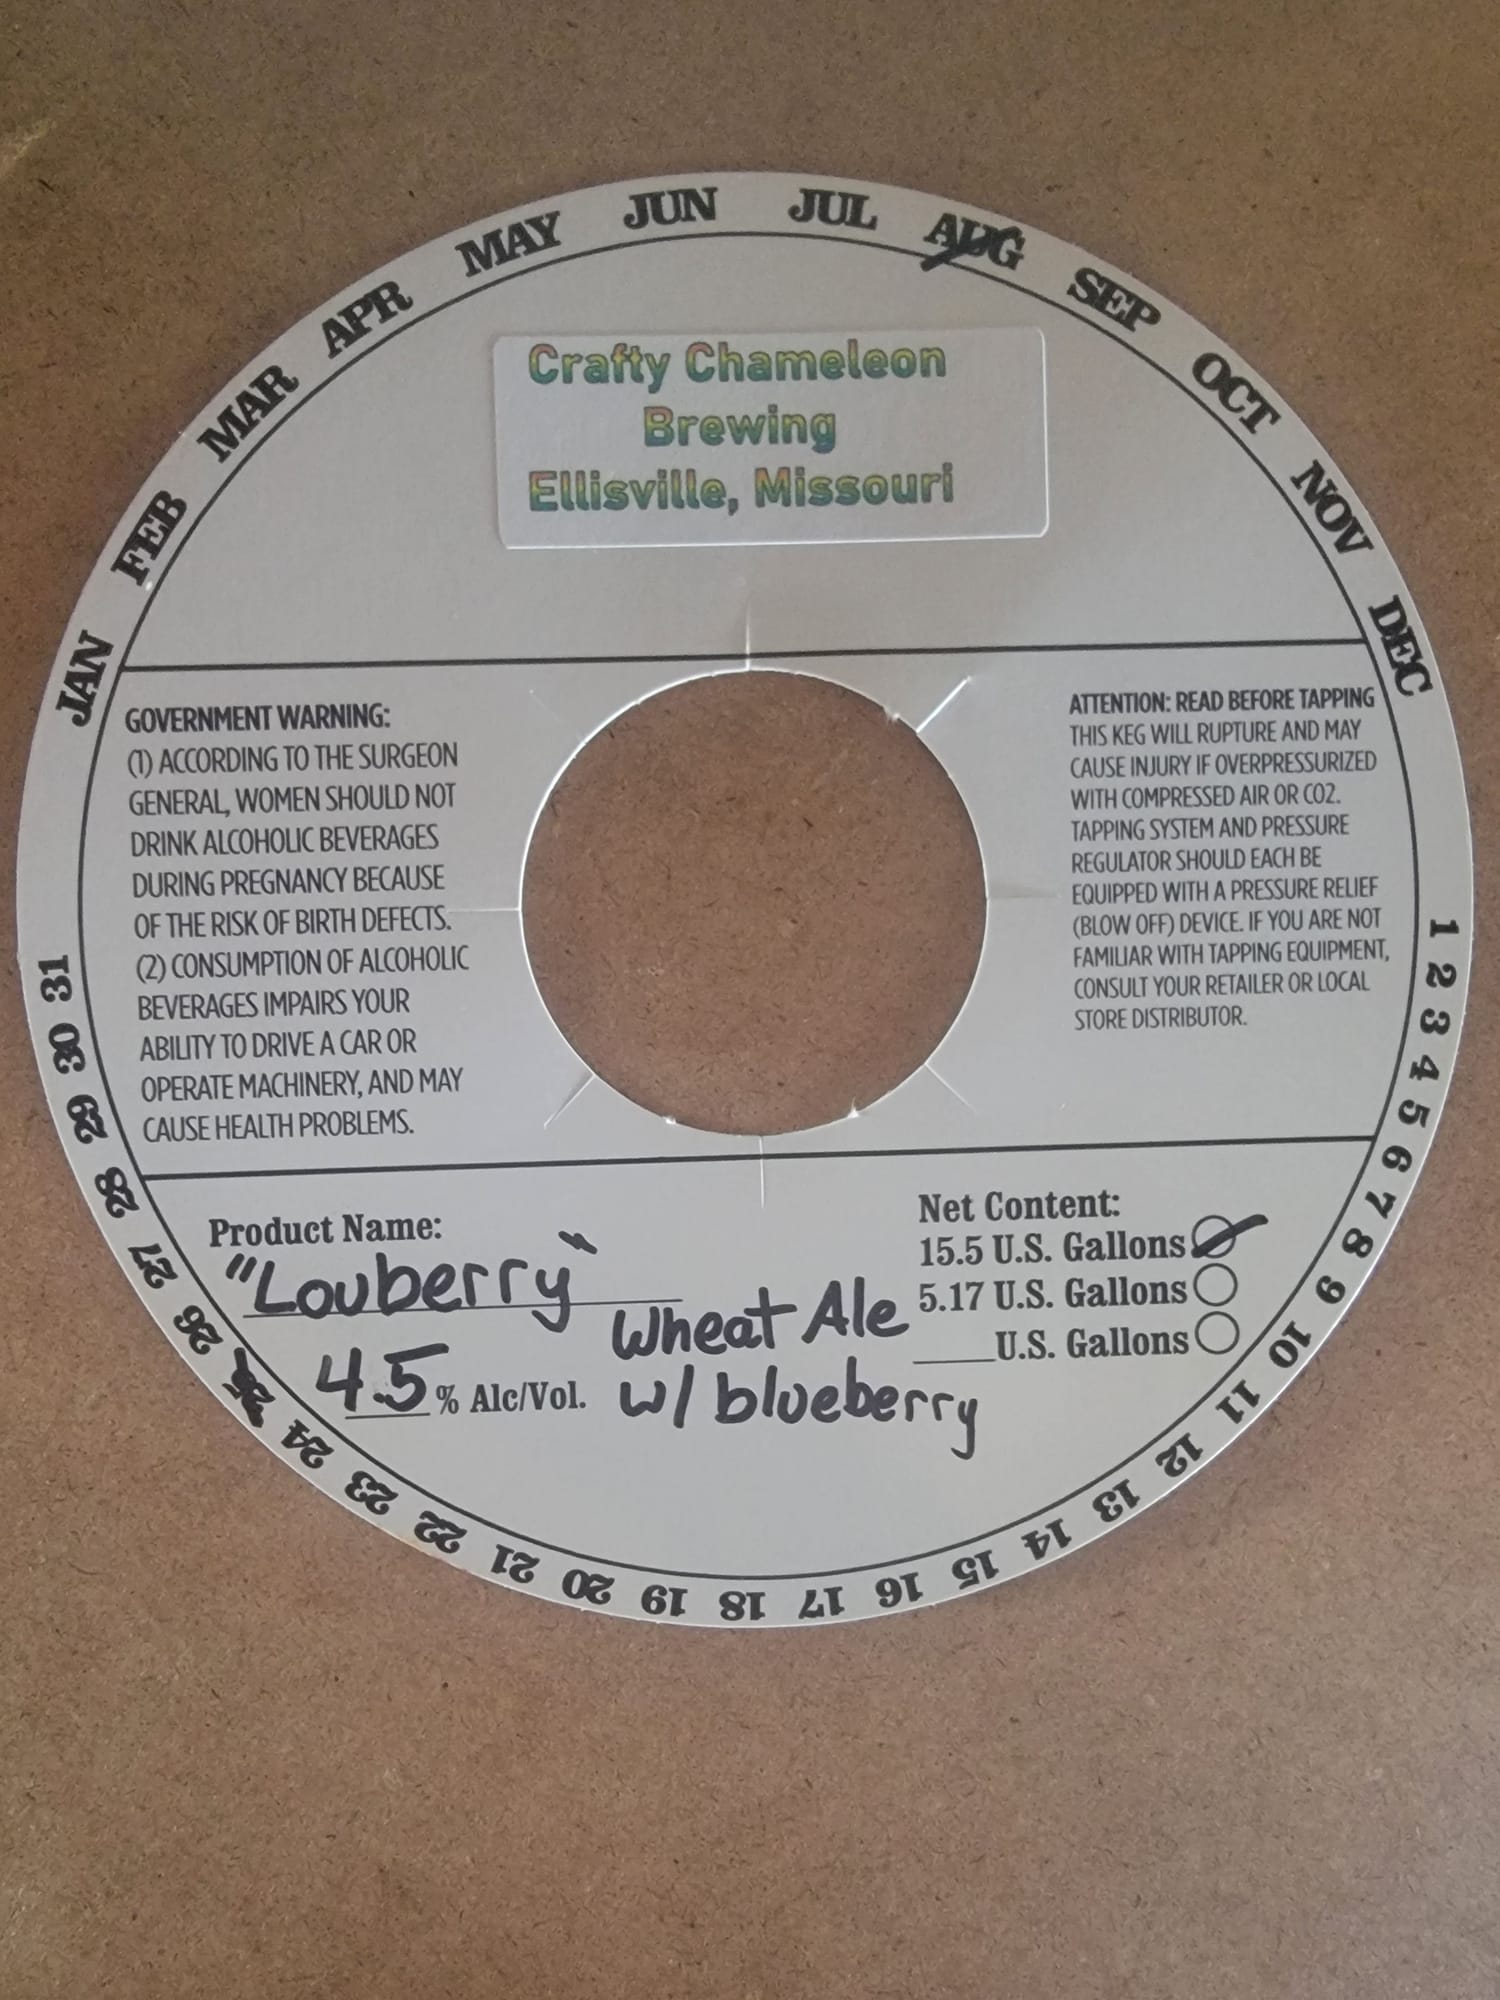 JAN FEB MAR APR MAY JUN JUL AUG SEP OCT NOV DEC
Crafty Chameleon
Brewing
Ellisville, Missouri
GOVERNMENT WARNING:
(1) ACCORDING TO THE SURGEON
GENERAL, WOMEN SHOULD NOT
DRINK ALCOHOLIC BEVERAGES
DURING PREGNANCY BECAUSE
OF THE RISK OF BIRTH DEFECTS.
(2) CONSUMPTION OF ALCOHOLIC
BEVERAGES IMPAIRS YOUR
ABILITY TO DRIVE A CAR OR
OPERATE MACHINERY, AND MAY
CAUSE HEALTH PROBLEMS.
ATTENTION: READ BEFORE TAPPING
THIS KEG WILL RUPTURE AND MAY
CAUSE INJURY IF OVERPRESSURIZED
WITH COMPRESSED AIR OR CO2.
TAPPING SYSTEM AND PRESSURE
REGULATOR SHOULD EACH BE
EQUIPPED WITH A PRESSURE RELIEF
(BLOW OFF) DEVICE. IF YOU ARE NOT
FAMILIAR WITH TAPPING EQUIPMENT,
CONSULT YOUR RETAILER OR LOCAL
STORE DISTRIBUTOR.
Product Name:
"Louberry"
Wheat Ale
w/ blueberry
4.5 % Alc/Vol.
Net Content:
15.5 U.S. Gallons
5.17 U.S. Gallons
____U.S. Gallons
1 2 3 4 5 6 7 8 9 10 11 12 13 14 15 16 17 18 19 20 21 22 23 24 25 26 27 28 29 30 31